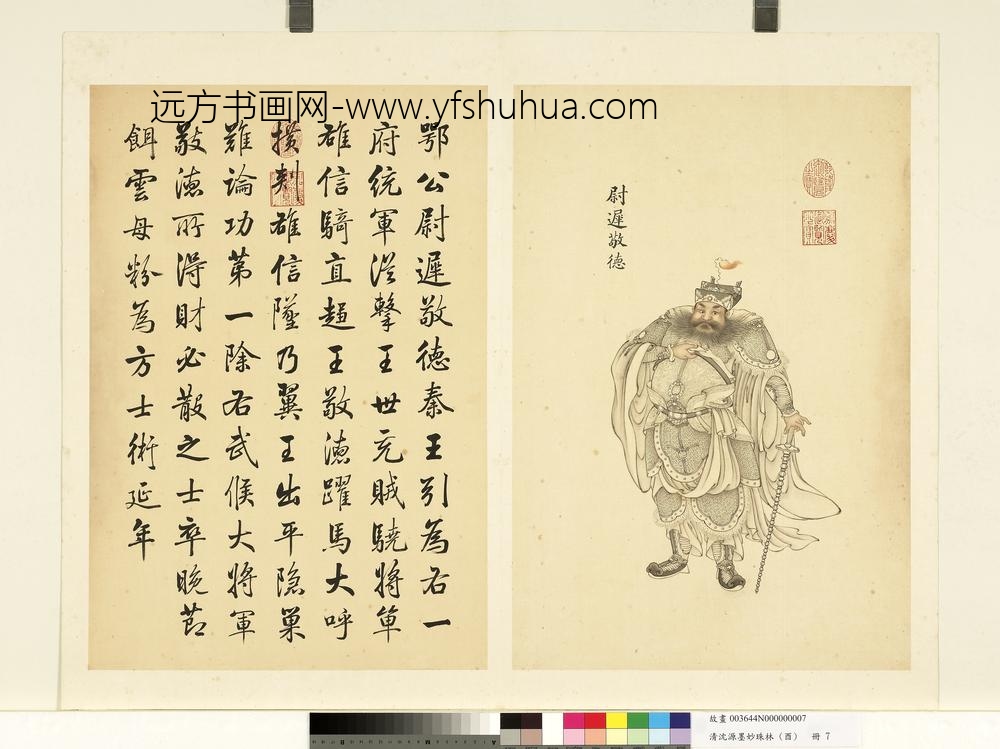 远方书画网-www.yfshuhua.com
尉遲敬德
鄂公尉遲敬德秦王引為右一
府統軍從擊王世充賊驍將單
雄信騎直趨王敬德躍馬大呼
橫刺雄信墜乃翼王出平隱巢
難論功第一除右武候大將軍
敬德所得財必散之士卒晚節
餌雲母粉為方士術延年
故畫 003644N000000007
清沈源墨妙珠林(酉) 冊 7